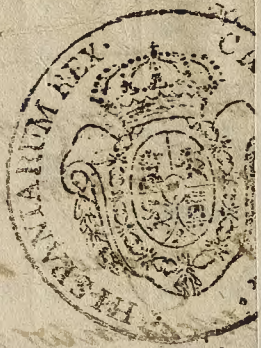 HISPANIARUM REX.